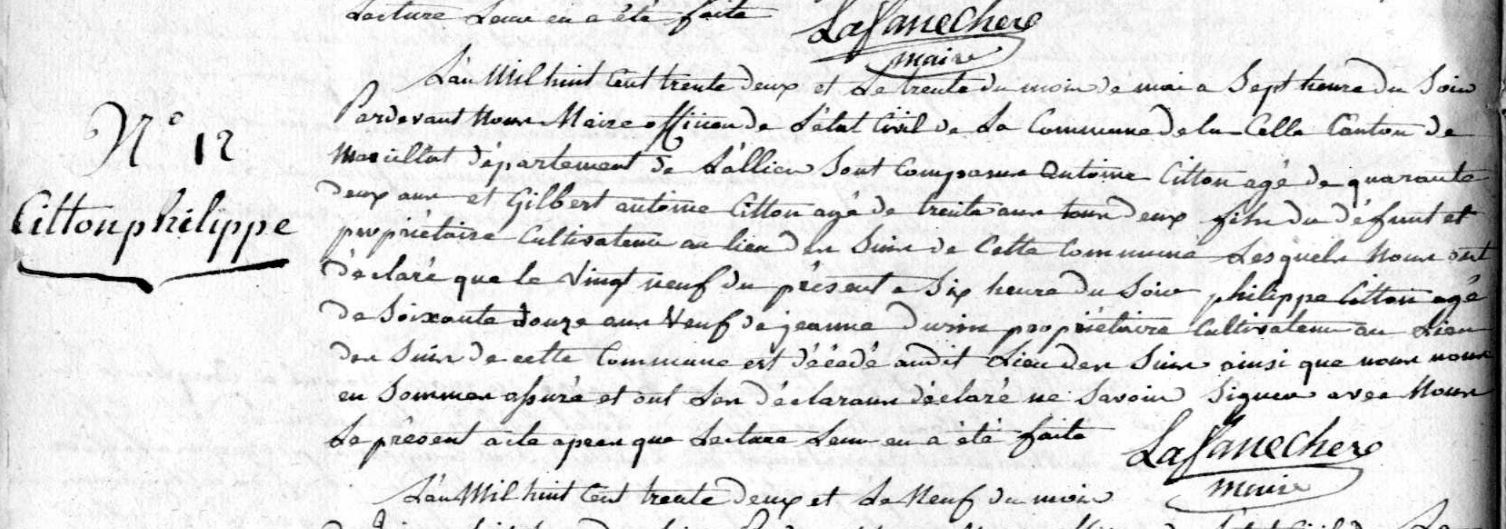 Lecture Leur en a été faite Lafanechere
maire
L'an Mil huit Cent trente deux et Le trente du mois de mai a Sept heure du Soir
N° 12
Pardevant Nous Maire officier de L'état Civil de La Commune de la Celle Canton de
Marcillat département de L'allier Sont Comparus Antoine Citton agé de quarante
Cittonphilippe
deux ans et Gilbert antoine Citton agé de trente ans tous deux fils du défunt et
propriétaire Cultivateur au lieu des Suins de Cette Commune Lesquels Nous ont
déclaré que le Vingt neuf du présent a Six heure du Soir philippe Citton agé
de Soixante douze ans Veuf de jeanne durin propriétaire Cultivateur au Lieu
des Suins de cette Commune est décédé audit Lieu des Suins ainsi que nous nous
en Sommes assuré et ont Les déclarans déclaré ne Savoir Signer avec Nous
Le présent acte apres que Lecture Leur en a été faite Lafanechere
maire
L'an Mil huit Cent trente deux et Le Neuf du mois